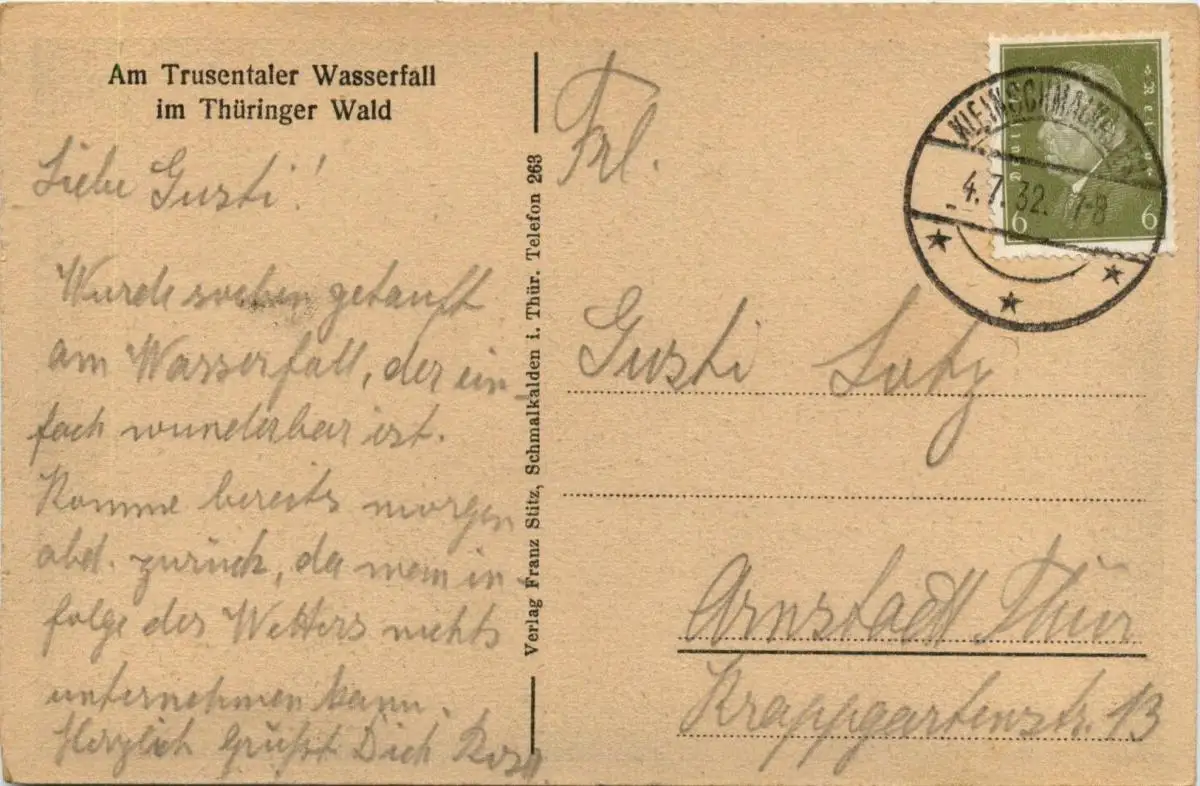 Am Trusentaler Wasserfall
im Thüringer Wald
Liebe Gusti!
Wurde soeben getauft
am Wasserfall, der ein-
fach wunderbar ist.
Komme bereits morgen
abd. zurück, da man in-
folge des Wetters nichts
unternehmen kann.
Herzlich grüßt Dich Rosa
Verlag Franz Stitz, Schmalkalden i. Thür. Telefon 263
Frl.
Gusti Lotz
Arnstadt Thür
Krappgartenstr. 13
4.7.32. 7-8
6 6